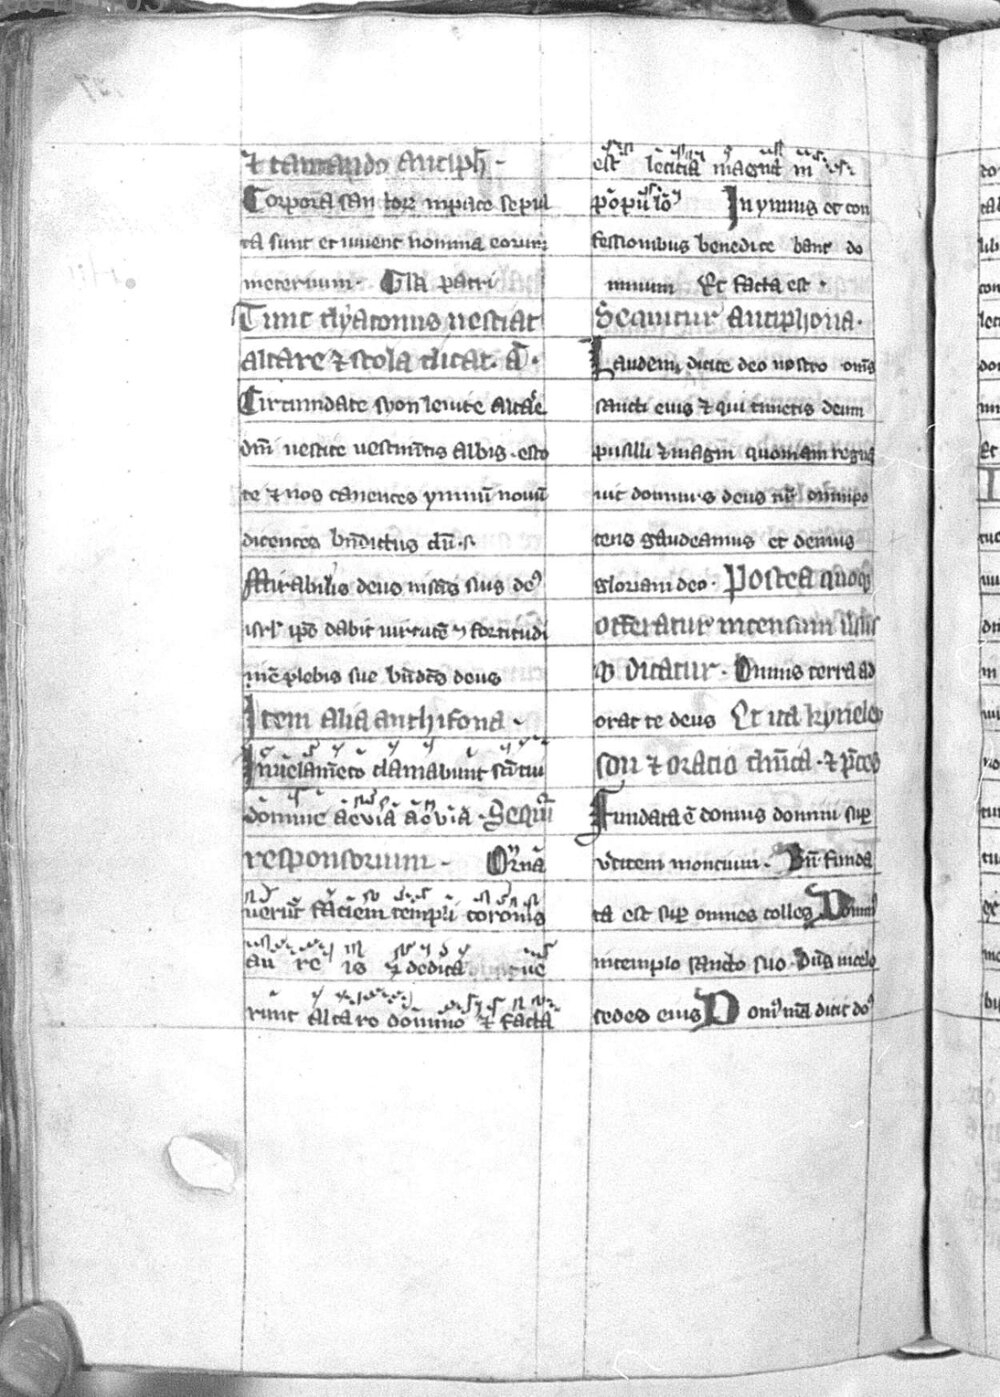 ⁊ cantando Antiph̄ ·
Corpora san toꝝ inpace sepul
ta sunt et uiuent nomina eorum
ineternum · Gl̄a patri
Tunc dyaconus uestiat
altare ⁊ stola dicat. a͞.
Circumdate syon leuite altare
dn̄i uestite uestim̄tis albis · esto
te ⁊ uos canentes ymnū nouū
dicentes bn̄dictus dn̄s
Mirabilis deus in sc̄is suis de᾽
isrl̄ ip̄e dabit uirtutē ⁊ fortitudi
nē plebis sue bn̄dc̄s deus
Item alia anthifona ·
In uelam̄eto clamabunt sc̄i tui
domine aeuia aeuia · Sequit̄
responsorium · Orna
uerūt faciem templi coronis
au re is ⁊ dedica ue
runt altare domino ⁊ facta
est leticia magna in
populo᾽ In ymnis et con
fessionibus benedice bant do
minum Et facta est ·
Sequitur Antiphona ·
Laudem dicite deo nostro om̄s
sancti eius ⁊ qui timetis deum
pusilli ⁊ magni quoniam regna
uit dominus deus nr̄ omnipo
tens gaudeamus et demus
gloriam deo · Postea quoqꝫ
offeratur incensum
dicatur · Omnis terra ad
orat te deus Et ita kyriele
son ⁊ oratio dn̄ica · ⁊ p̄ces
Fundata ē domus domini sup̄
uerticem montium · Bn̄ funda
ta est sup̄ omnes colles Domin᾽
in templo sancto suo · Dn̄s in celo
sedes eius Domin᾽ n̄a dicit do᾽